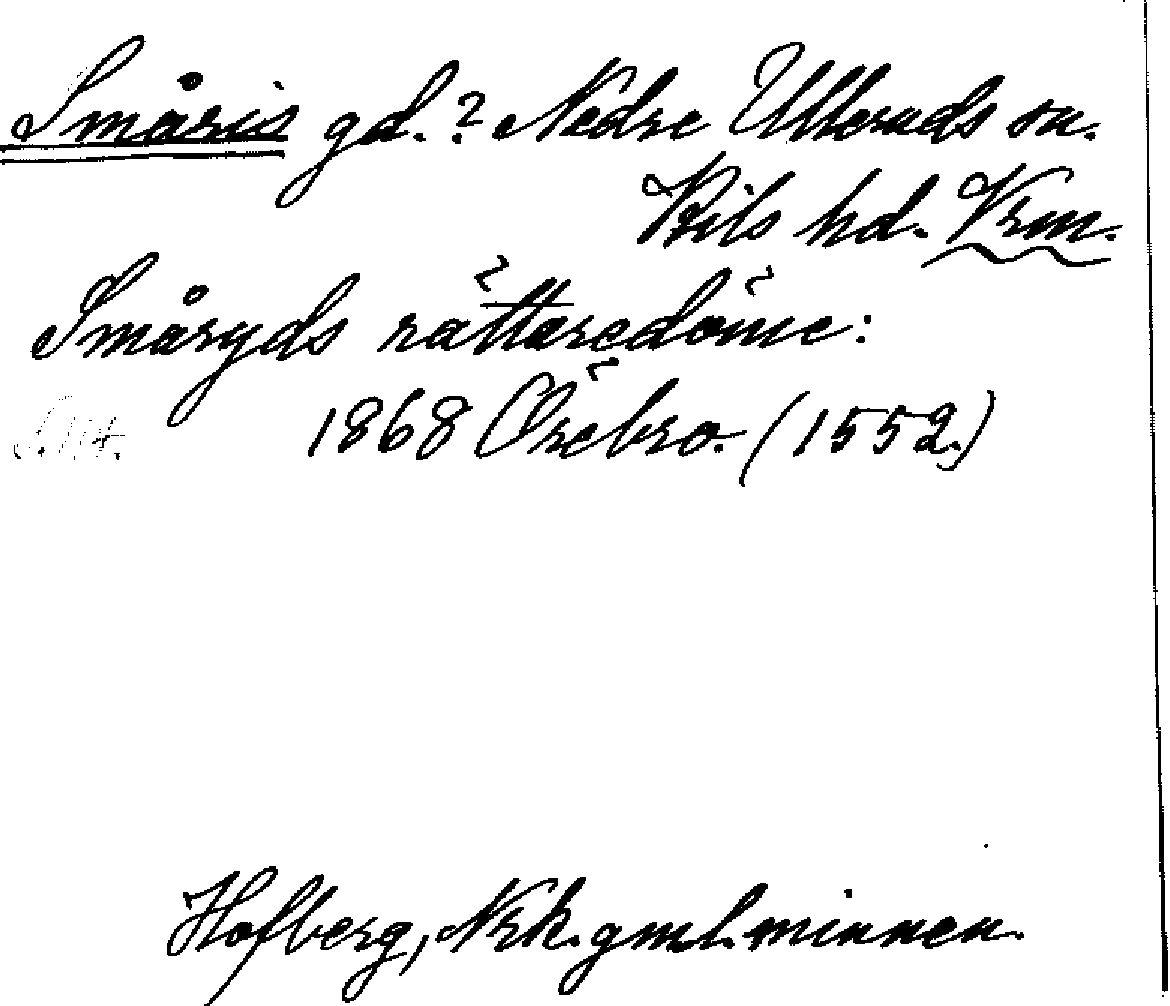 Småris gd.? Nedre Ulleruds sn.
Kils hd. Vrm.
Småryds rättaredöme:
1868 Örebro. (1552.)
Hofberg, Nrk. gml. minnen.